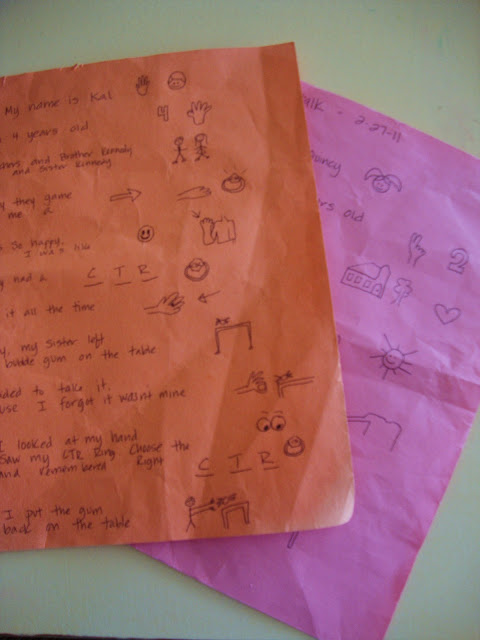 My name is Kal
4 years old
4
and Brother Kennedy
and Sister Kennedy
they game
me a
So happy.
I was
had a C T R
it all the time
my sister left
bubble gum on the table
to take it.
I forgot it wasnt mine
I looked at my hand
Saw my CTR Ring Choose the
and remembered Right
C T R
I put the gum
back on the table
Talk - 2-27-11
old
2